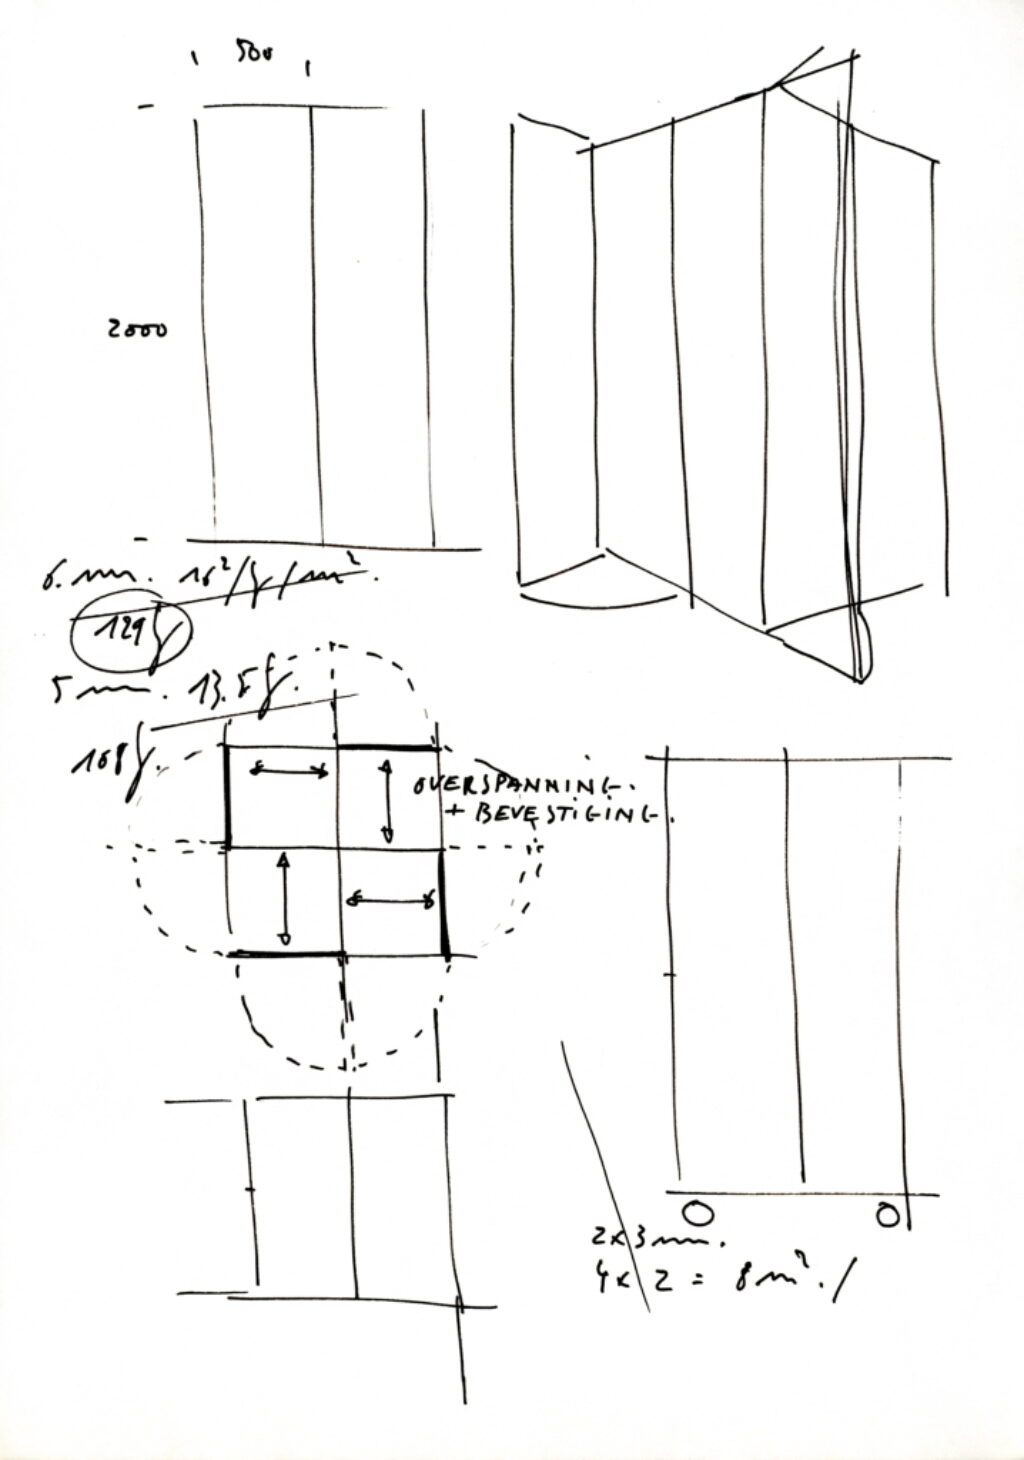 500
2000
6 mm. 16²/f/m².
129f
5 mm. 13.5f.
108f.
OVERSPANNING.
+ BEVESTIGING.
2x3 mm.
4x2 = 8 m². /